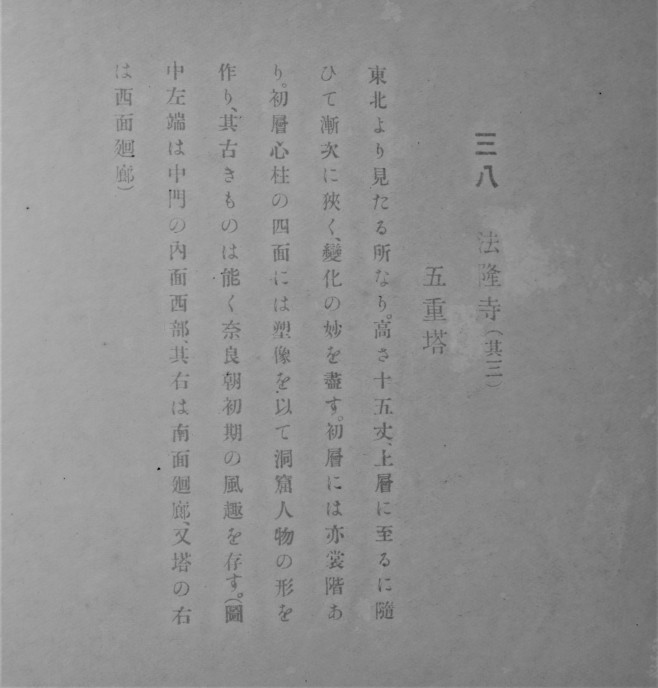 三八 法隆寺(其三)
五重塔
東北より見たる所なり。高さ十五丈、上層に至るに隨
ひて漸次に狹く、變化の妙を盡す。初層には亦裳階あ
り。初層心柱の四面には塑像を以て洞窟人物の形を
作り、其古きものは能く奈良朝初期の風趣を存す。(圖
中左端は中門の內面西部、其右は南面廻廊、又塔の右
は西面廻廊)